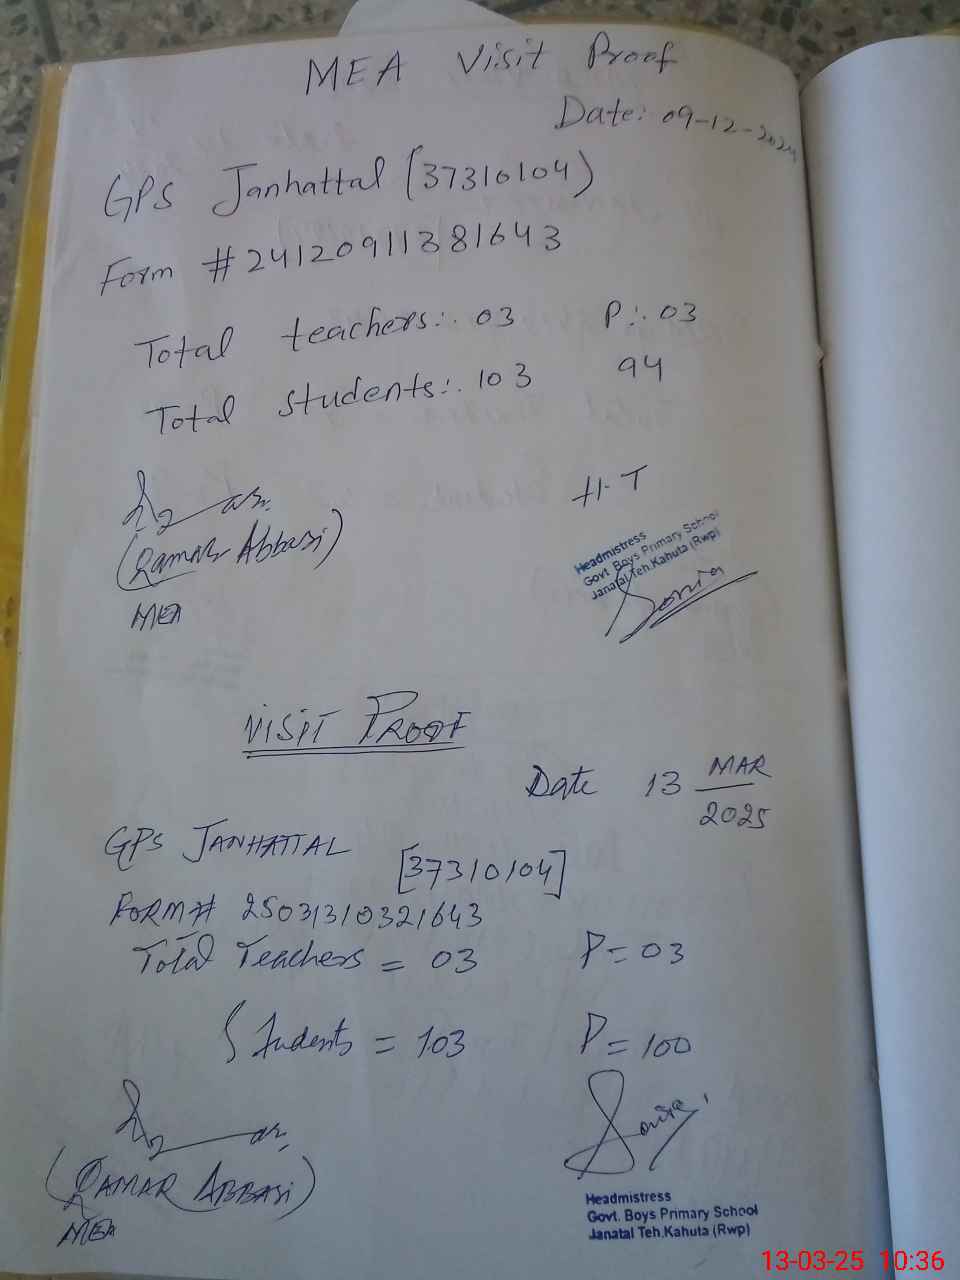 MEA Visit Proof
Date: 09-12-2024
GPS Janhattal (37310104)
Form # 24120911381643
Total teachers:. 03 P:. 03
Total students:. 103 94
(Qamar Abbasi)
MEA
H.T
Headmistress
Govt. Boys Primary School
Janatal Teh.Kahuta (Rwp)
Sonia
VISIT PROOF
Date 13 MAR
2025
GPS JANHATTAL [37310104]
FORM# 25031310321643
Total Teachers = 03 P = 03
Students = 103 P = 100
(QAMAR ABBASI)
MEA
Headmistress
Govt. Boys Primary School
Janatal Teh.Kahuta (Rwp)
13-03-25 10:36